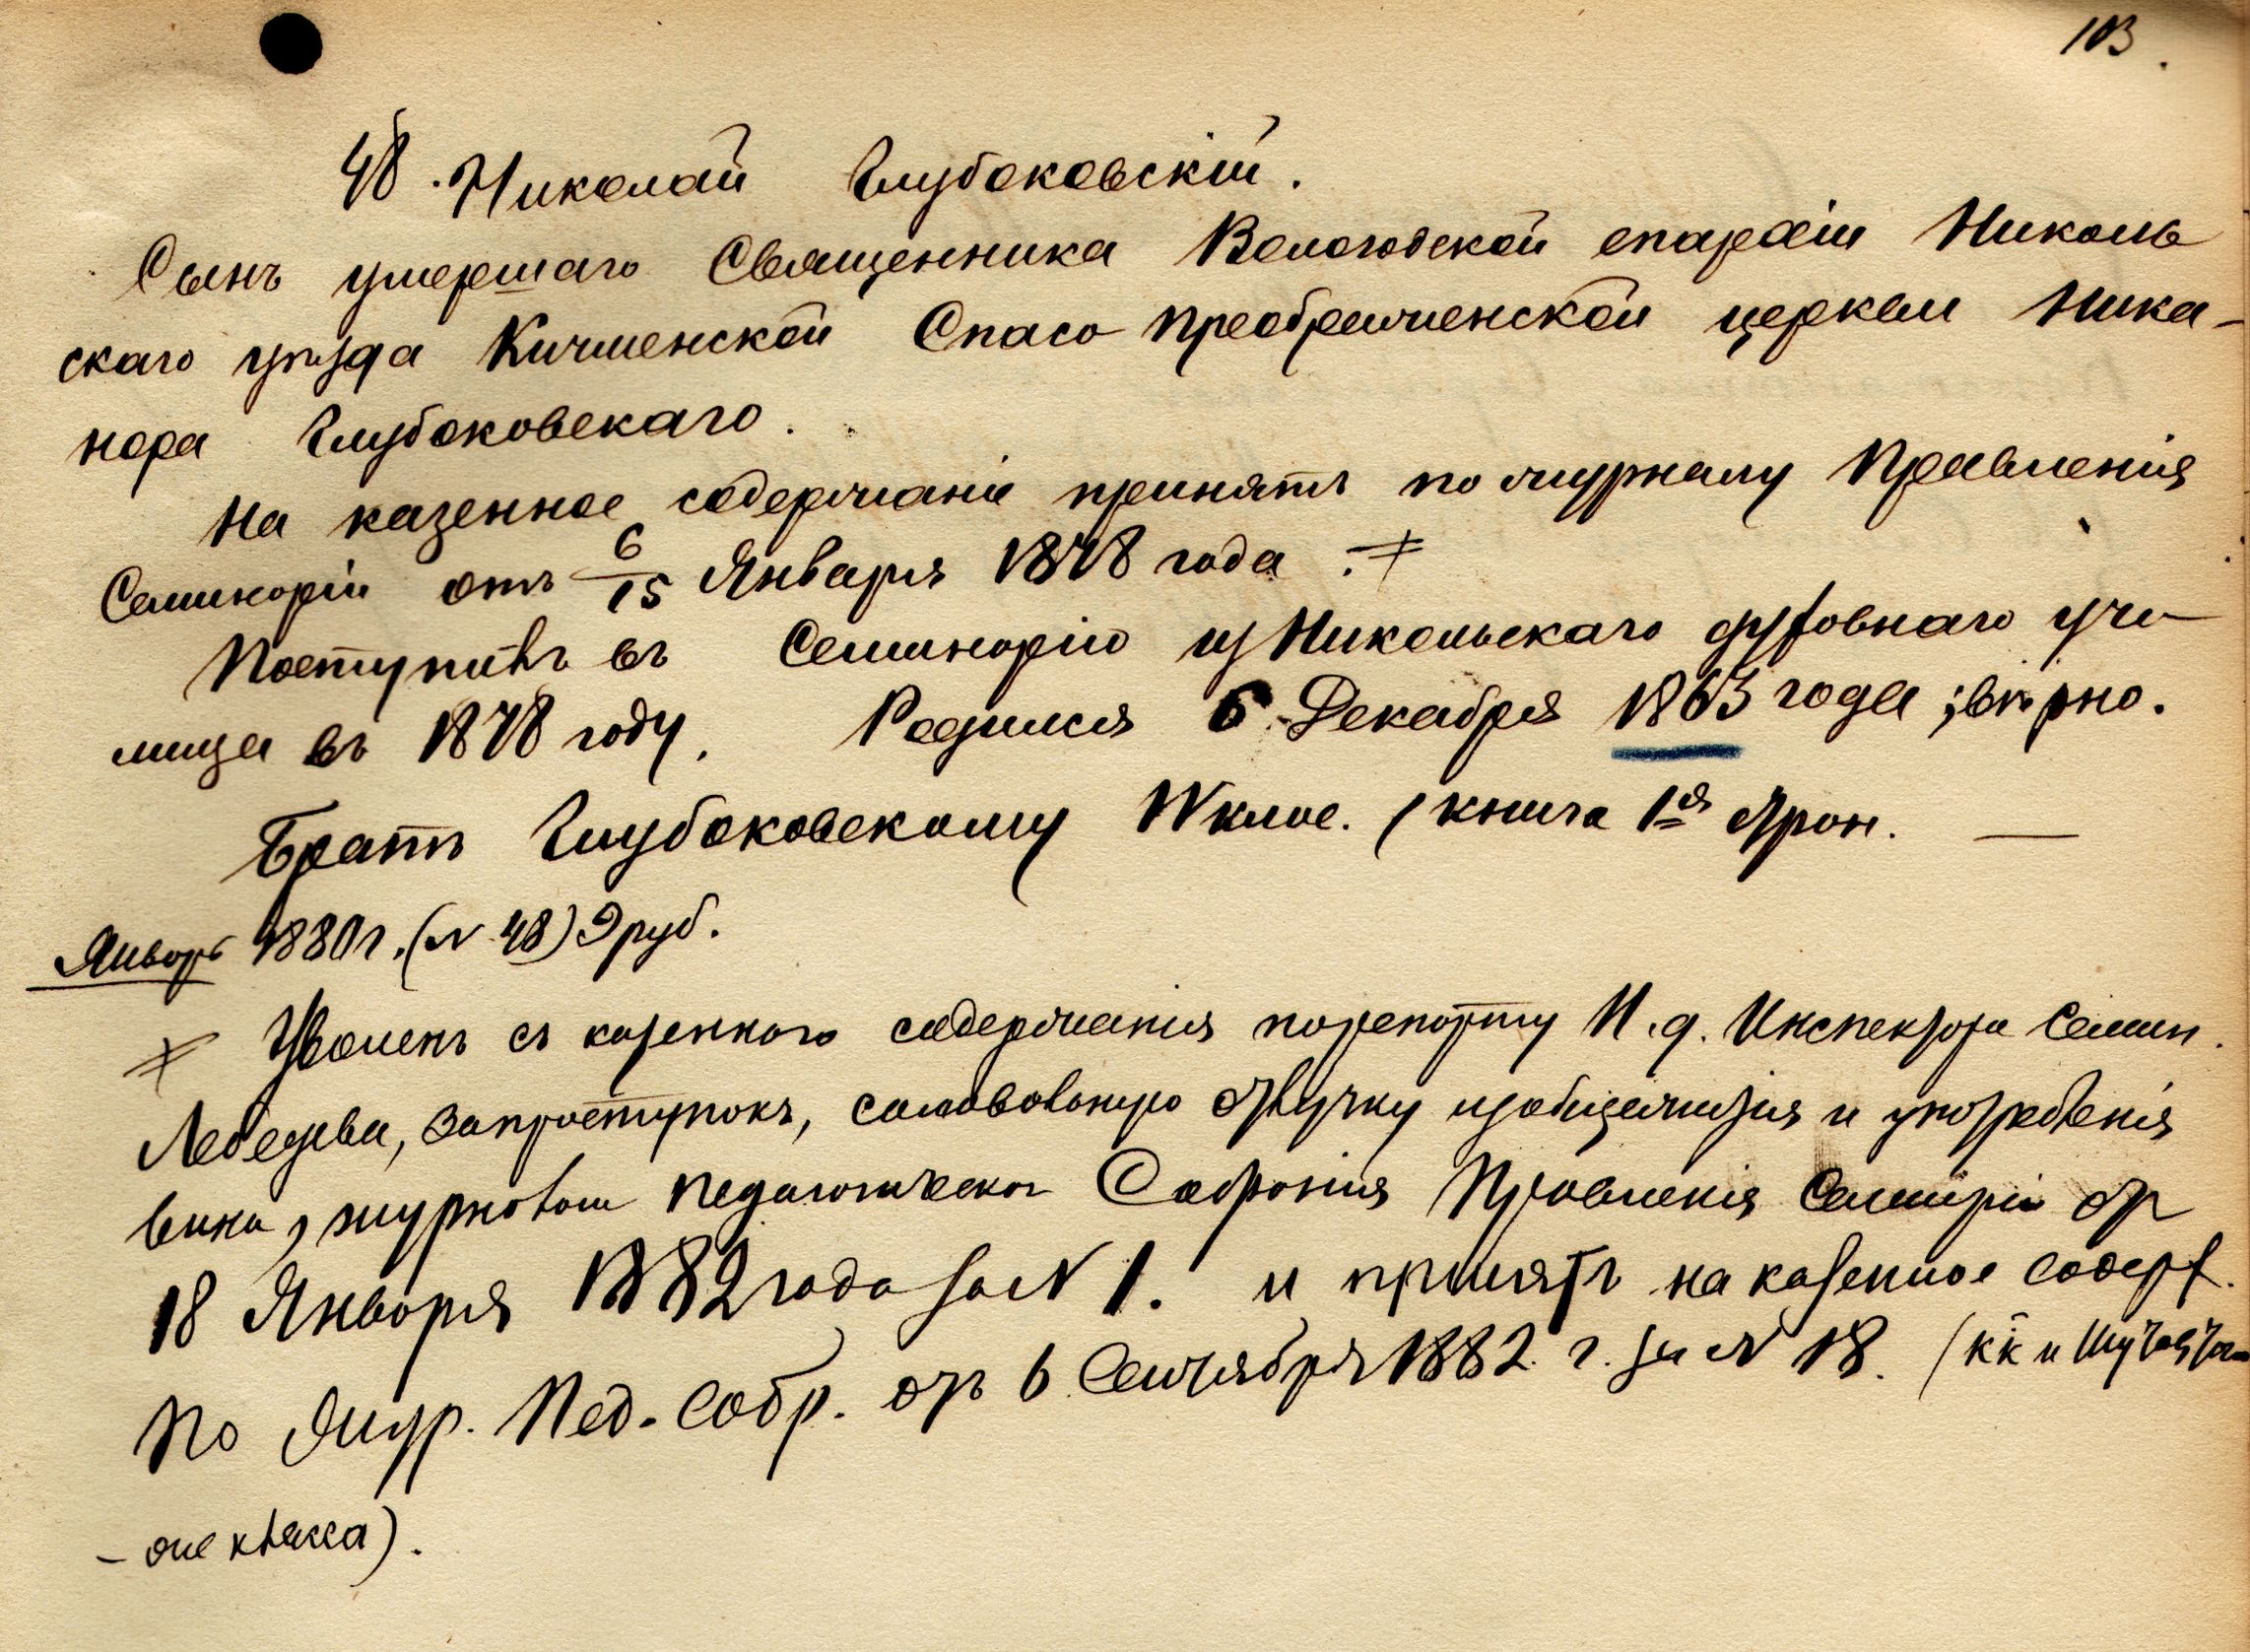 103.
48. Николай Глубоковскій.
Сынъ умершаго Священника Вологодской епархіи Николь
скаго уѣзда Кичменской Спасо Преображенской церкви Ника-
нора Глубоковскаго.
На казенное содержаніе принятъ по журналу Правленія
Семинаріи отъ 6/15 Января 1878 года. ≠
Поступилъ въ Семинарію из Никольскаго духовнаго учи-
лища въ 1878 году. Родился 6 Декабря 1863 года; вѣрно.
Братъ Глубоковскому IV клас. (книга 1я
Январь 1880 г. (№ 48) 9 руб.
≠ Уволенъ съ казеннаго содержанія по рапорту И. д. Инспектора Семин.
Лебедева, за проступокъ, самовольную отлучку из общежитія и употребленія
вина, журналом Педагогическаг Собранія Правленія Семинріи от
18 Января 1882 года за № 1. и принятъ на казенное содерж.
По Журн. Пед. Собр. отъ 6 Сентября 1882. г. за № 18. (кк и
- оие класса).